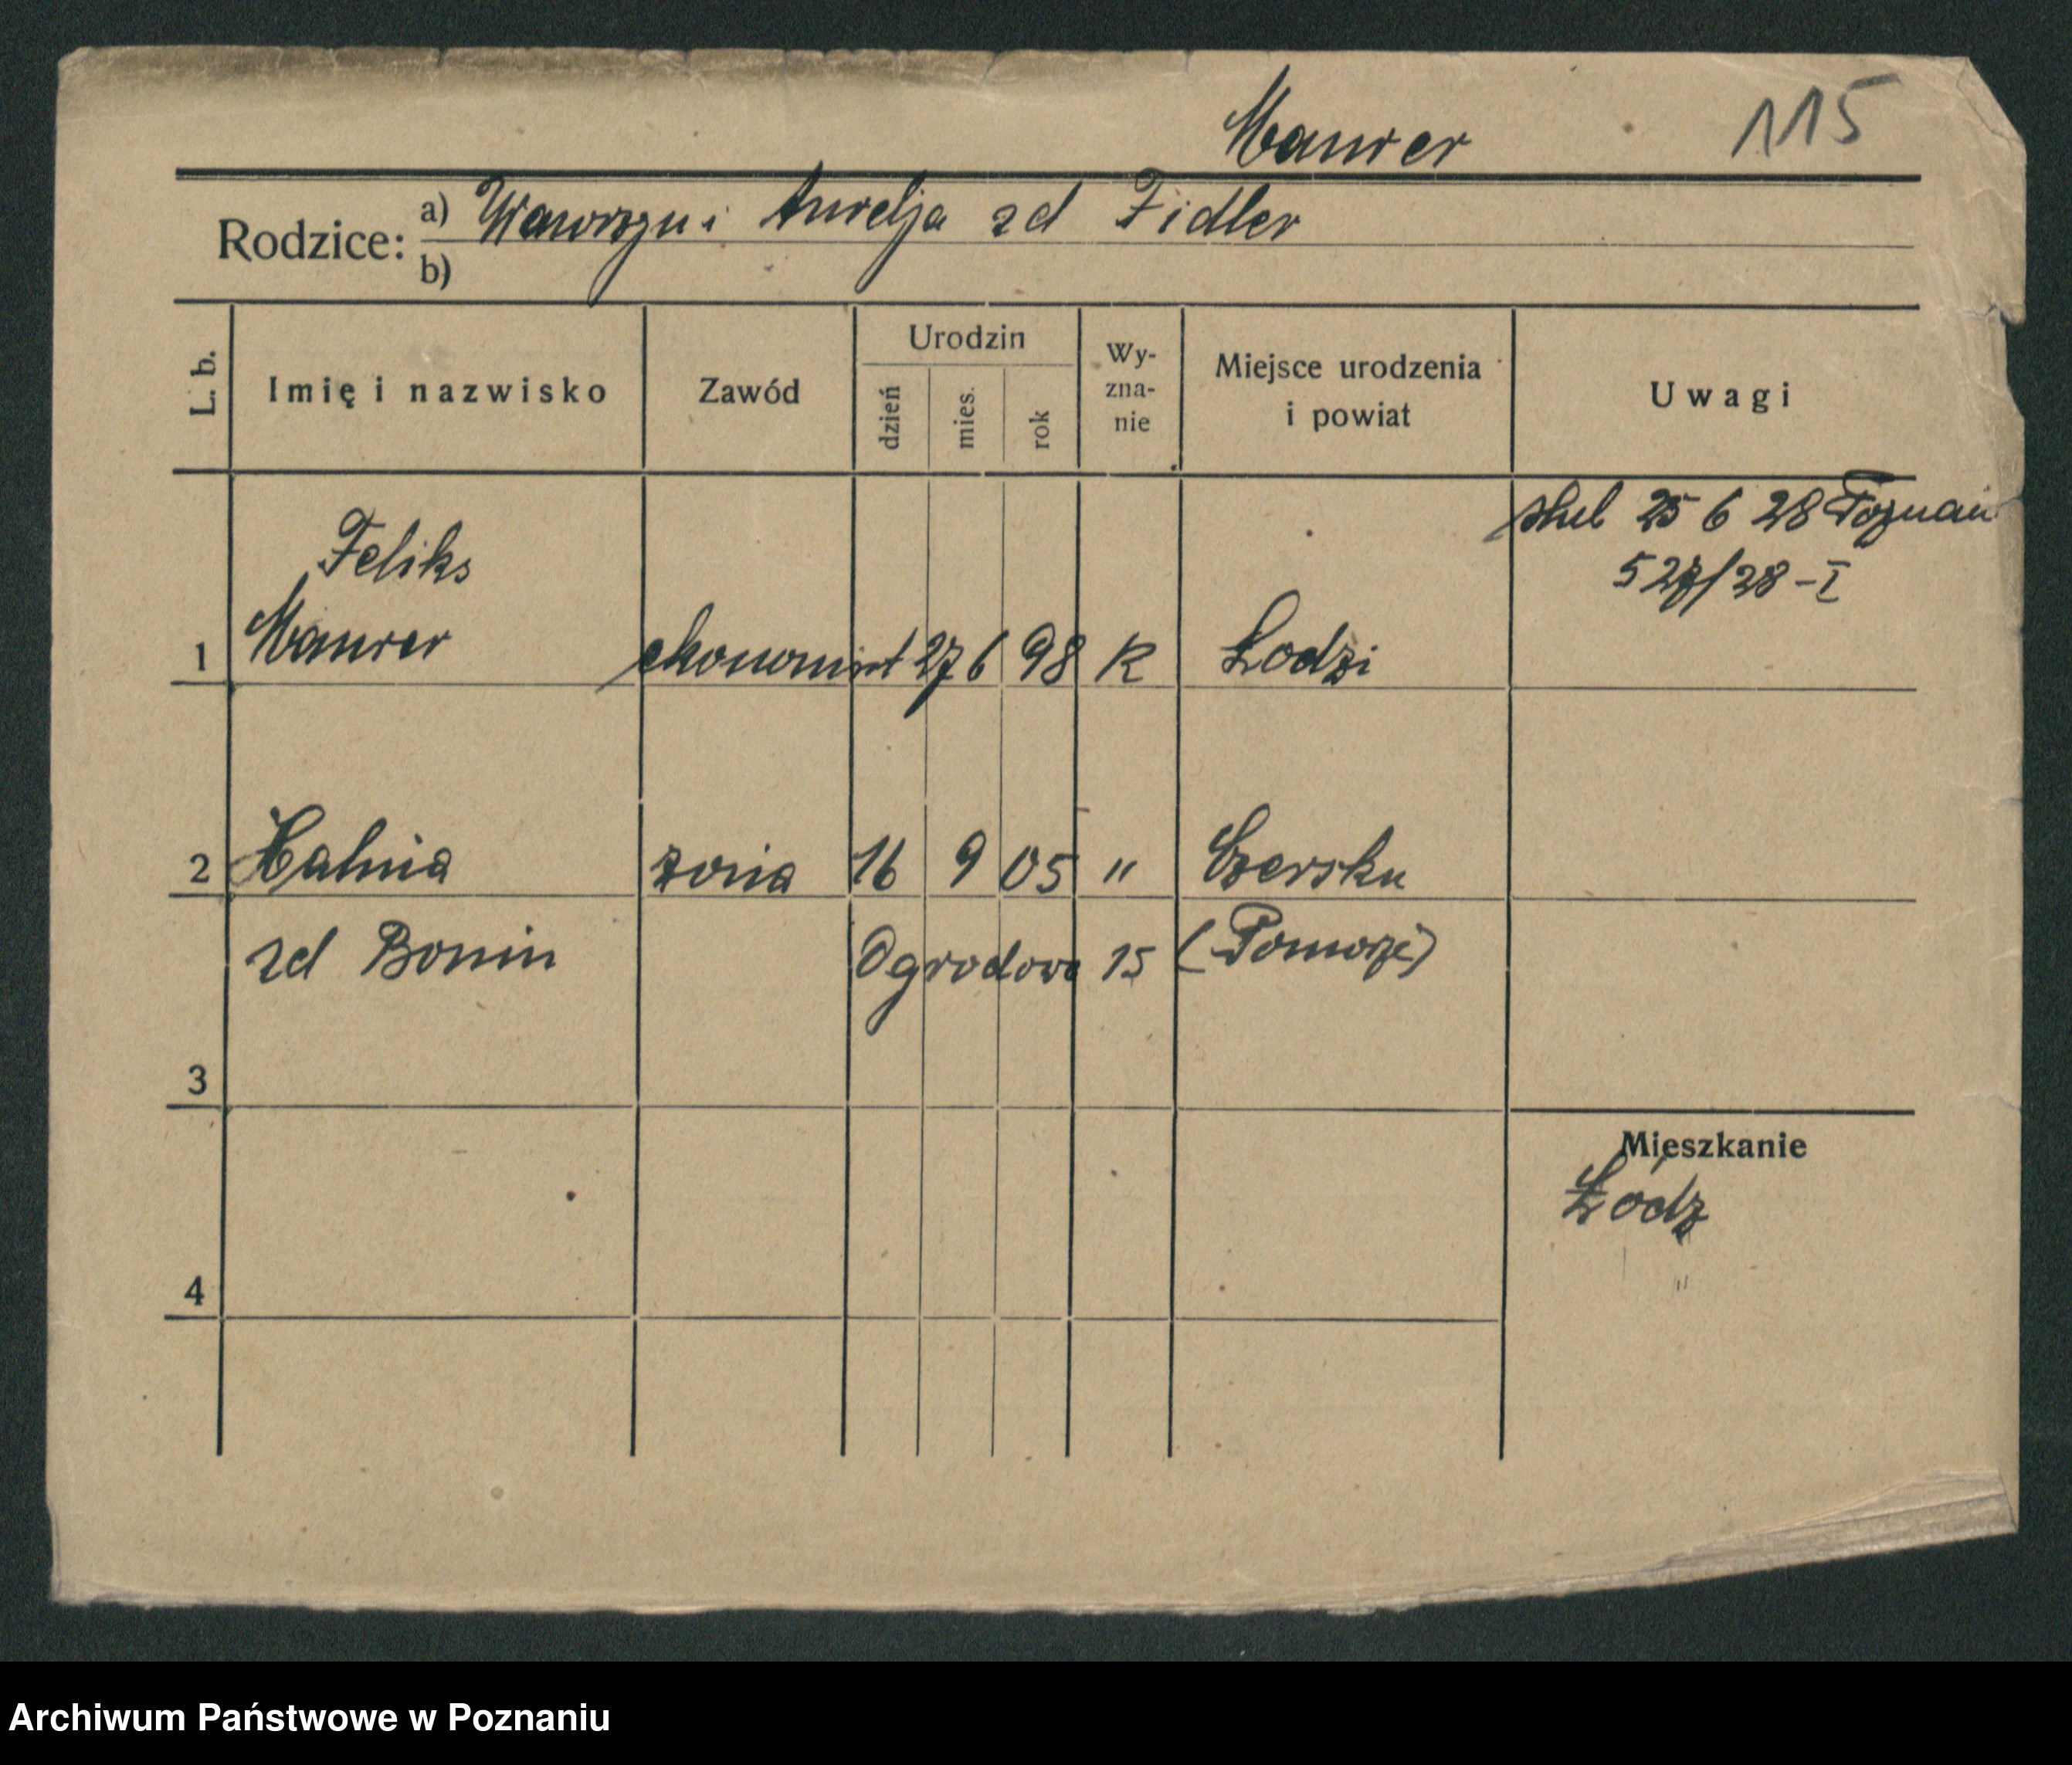 Maurer 115
Rodzice: a) Wawrzyn i Aurelja zd Fidler
b)
L. b. Imię i nazwisko Zawód Urodzin dzień mies. rok Wy-zna-nie Miejsce urodzenia i powiat Uwagi
ślub 25 6 28 Poznań
527/28 – I
Feliks
1 Maurer ekonomist 27 6 98 K Łodzi
2 Halina żona 16 9 05 " Czersku
zd Bonin Ogrodowa 15 (Pomorze)
3
Mieszkanie
Łódz
4
Archiwum Państwowe w Poznaniu